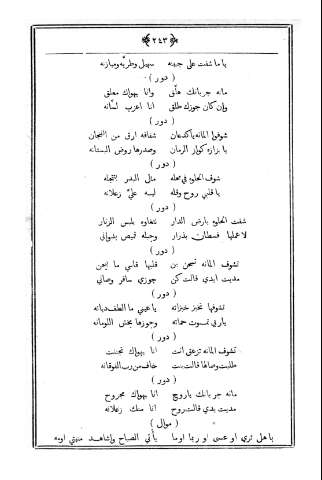 ﴿٢٤٣﴾
يا ما شفت على جبينه سهيل وطريه وميازنه
( دور )
مانه جربانك هلّق وانا بهواك معلق
وان كان جوزك طلق انا اعزب لمّانه
( دور )
شوفوا المانه يا كدعان شفافه ارق من الفنجان
يا بزازه كواز الرمان وصدرها روض البستانه
( دور )
شوف الحلوه في محله مثل البدر
يا قلبي روح وقله ليه عليّ زعلانه
( دور )
شفت الحلوه بارض الدار تتغاوه بلبس الزنار
لا عملها فسطان بدزار وجبله قميص
( دور )
تشوف المانه تسجن بن قلبها قاسي ما يحن
مديت ايدي قالت كن جوزي سافر وصاني
( دور )
تشوفها تخبز خبزانه يا عيني ما الطف دياته
يا ربي تموت حماته وجوزها بحبش اللومانه
( دور )
تشوف المانه تزعق انت انا بهواك تجننت
طلبت وصالها قالت بنت خاف من رب الفوقانه
( دور )
مانه جربانك يا روح انا بهواك مجروح
مديت يدي قالت روح انا منك زعلانه
( موال )
يا هل ترى او عسى او ربما اوما يأتي الصباح واشاهد منيتي اومه